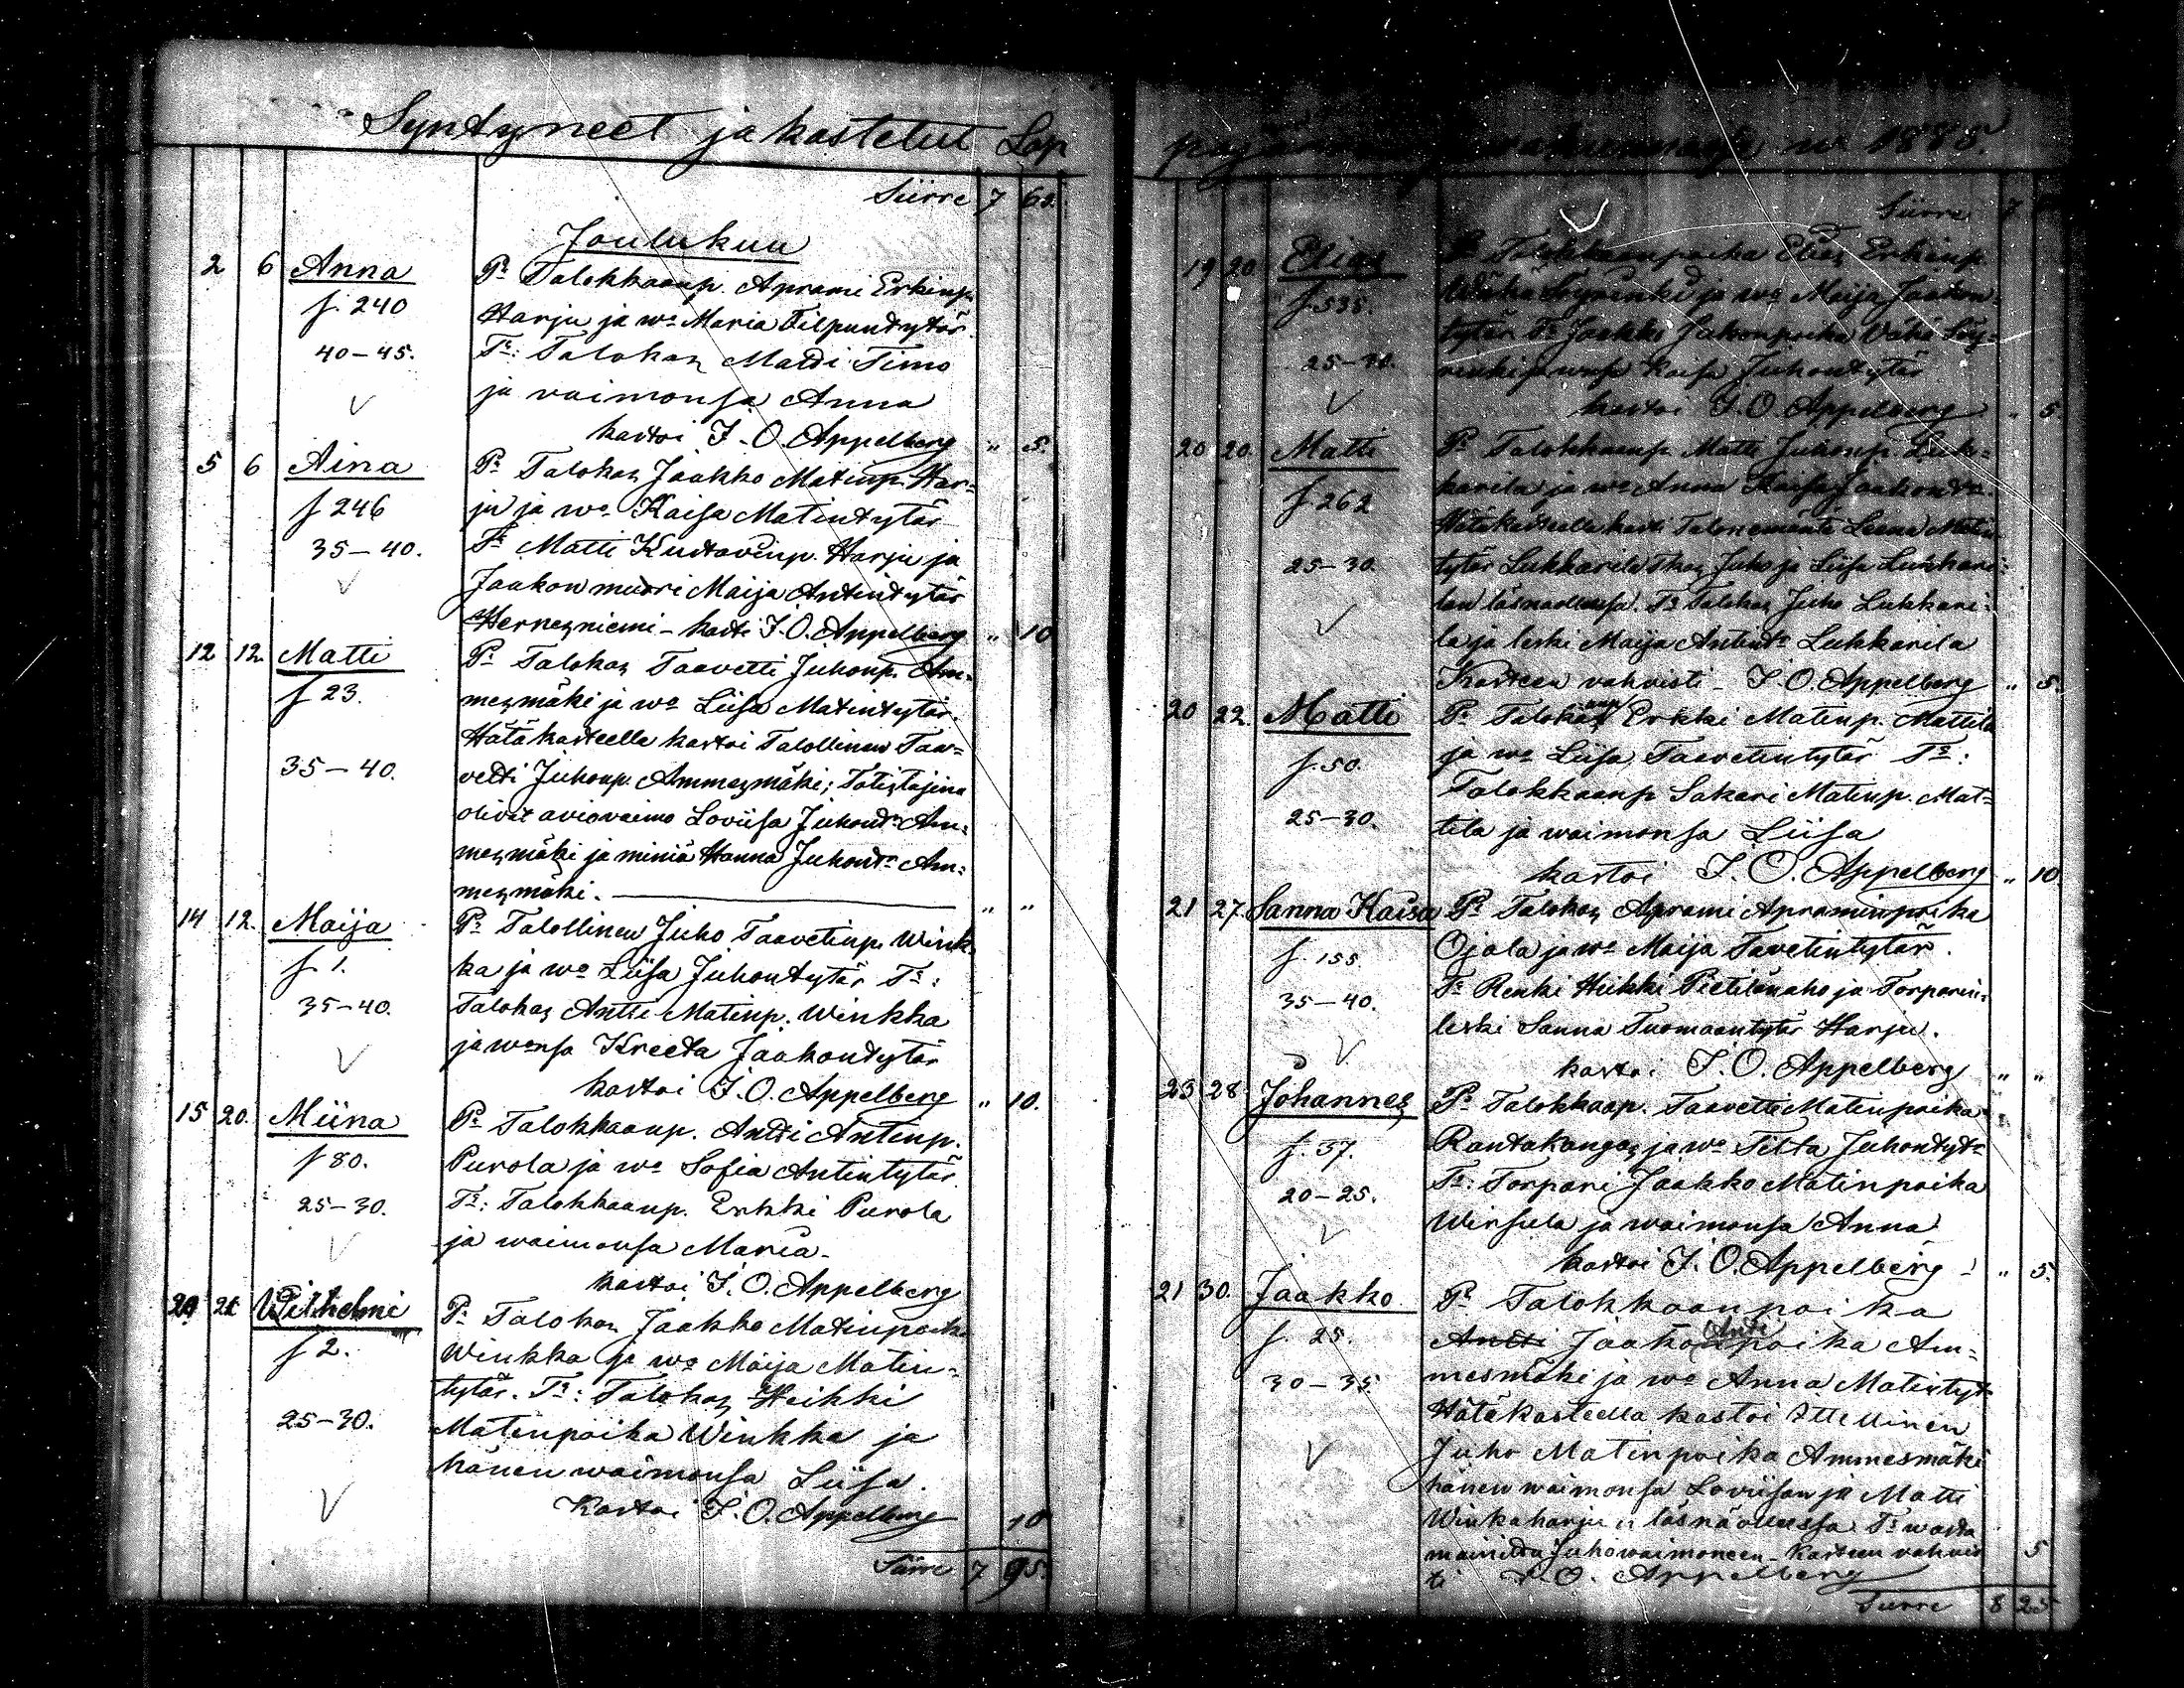 Syntyneet ja kastetut Lap
Siirre 7 60.
Joulukuu
2 6 Anna Pr Talokkaanp. Aprami Erkinp.
f. 240 Harju ja wo Maria Filpuntytär.
40-45. Tr: Talokas Matti Timo
ja vaimonsa Anna
kastoi J. O. Appelberg " 5.
5 6 Aina Pr Talokas Jaakko Matinp. Har=
f 246 ju ja wo Kaisa Matintytär
35-40. Tr Matti Kustavinp. Harju ja
Jaakon muori Maija Antintytär
Hernesniemi - kasti J. O. Appelberg " 10
12 12. Matti Pr Talokas Taavetti Juhonp. Am=
f 23. mesmäki ja wo Liisa Matintytär.
Hätäkasteella kastoi Talollinen Taa=
35-40. vetti Juhonp. Ammesmäki; Todistajina
olivat aviovaimo Loviisa Juhontr Am=
mesmäki ja miniä Hanna Juhontr Am=
mesmäki. " "
14 12. Maija Pr Talollinen Juho Taavetinp. Wink=
f 1. ka ja wo Liisa Juhontytär Tr:
35-40. Talokas Antti Matinp. Winkka
ja wonsa Kreeta Jaakontytär
kastoi J. O. Appelberg " 10.
15 20. Miina Pr Talokkaanp. Antti Antinp.
f 80. Purola ja wo Sofia Antintytär.
25-30. Tr: Talokkaanp. Erkki Purola
ja waimonsa Maria.
kastoi J. O. Appelberg
Wilhelmi Pr Talokas Jaakko Matinpoika
f 2. Winkka ja wo Maija Matin=
tytär. Tr: Talokas Heikki
25-30. Matinpoika Winkka ja
hänen waimonsa Liisa.
Kastoi J. O. Appelberg 10
Siirre 7 95.
1885.
Siirre 7
19 20 Elias Pr Talokkaanpoika Elias Erkinp.
f. 535. Wähä Söyrinki ja wo Maija Jaakon
tytär Tr Jaakko Jakonpoika Vähä Söy=
25-30. rinki ja wnsa Kaisa Juhontytär
kastoi J. O. Appelberg " 5
20 20 Matti Pr Talokkaanp. Matti Juhonp. Luk=
f 262 karila ja wo Anna Kaisa Jaakontr.
Hätäkasteella kasti Talonemäntä Leena Matin
25-30. tytär Lukkarila Juho ja Liisa Lukkari=
lan läsnäollessa. Tr Talokas Juho Lukkari=
la ja leski Maija Antintr Lukkarila
Kasteen vahvisti - J. O. Appelberg " 5.
20 22. Matti Pr Talokkaanp Erkki Matinp. Mattila
f. 50. ja wo Liisa Taavetintytär Tr:
Talokkaanp Sakari Matinp. Mat=
25-30. tila ja waimonsa Liisa
kastoi J. O. Appelberg " 10
21 27 Sanna Kaisa Pr Talokas Aprami Apraminpoika
f. 155. Ojala ja wo Maija Tavetintytär.
35-40. Tr Renki Heikki Pietilänaho ja Torparin=
leski Sanna Tuomaantytär Harju.
kastoi J. O. Appelberg " "
23 28. Johannes Pr Talokkaanp. Taavetti Matinpoika
f. 37. Rantakangas ja wo Tilta Juhontytr
20-25. Tr: Torpari Jaakko Matinpoika
Wirsula ja waimonsa Anna
kastoi J. O. Appelberg " 5.
21 30. Jaakko Pr Talokkaanpoika
f. 25. Antti Jaakonpoika Am=
30-35 mesmäki ja wo Anna Matintyt
Hätäkasteella kastoi Itellinen
Juho Matinpoika Ammesmäki
hänen waimonsa Loviisan ja Matti
Winkaharjun läsnäollessa Tr wasta
mainittu Juho waimoneen - Kasteen vahvis
ti J. O. Appelberg 5
Siirre 8 25